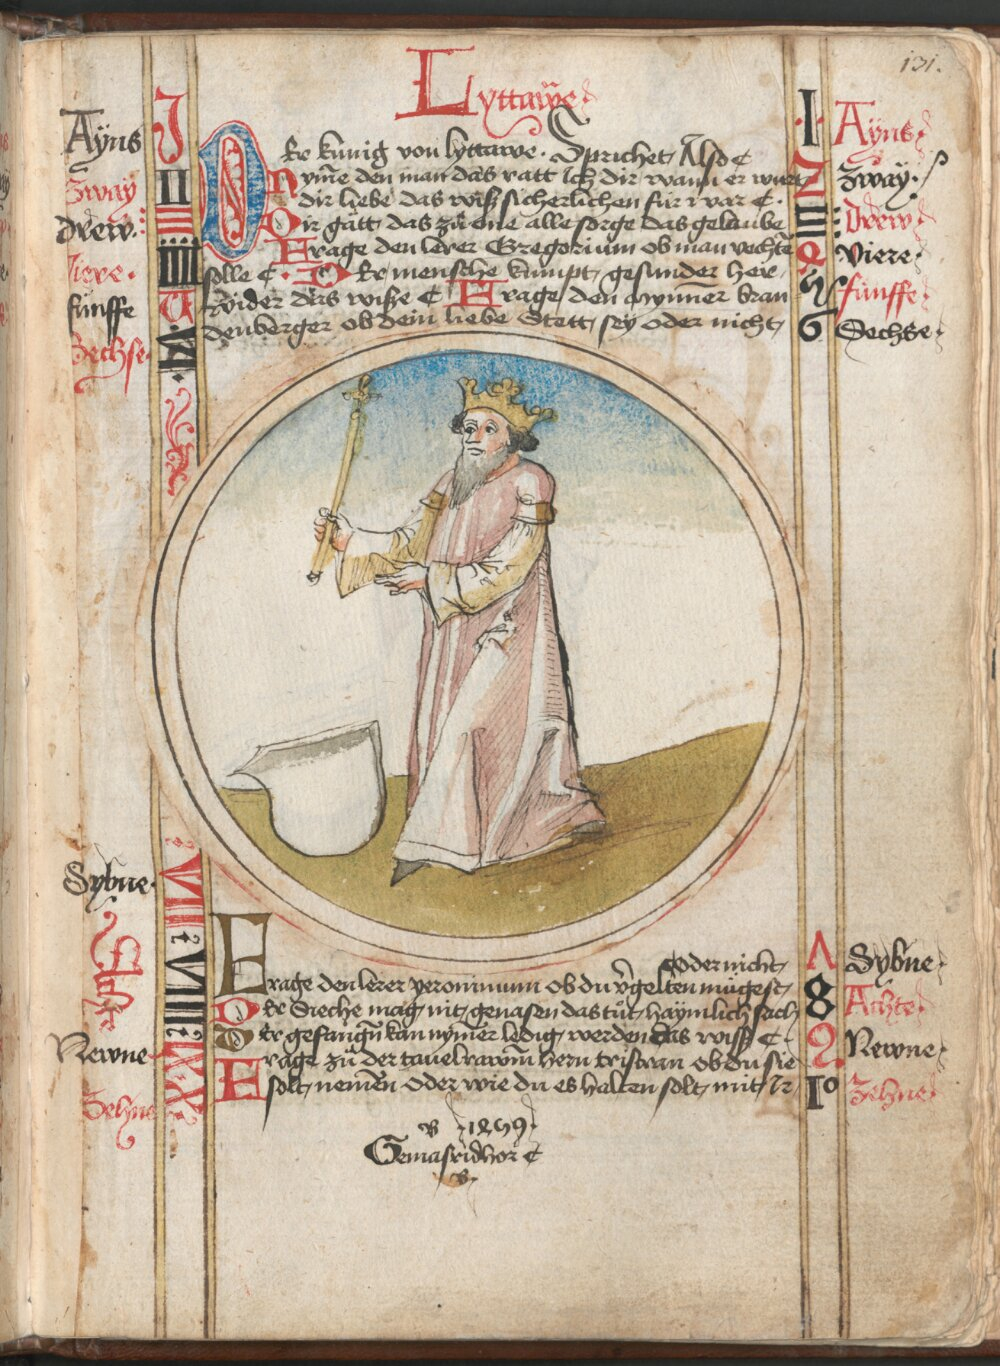 131.
Lyttaw̃e
Der künig von lyttawe. Sprichet Also
Nyme den man das ratt Ich dir wann er wirt
dir liebe das wiß sicherlichen für war
Dir gätt das zü one alle sorge das gelaube
Frage den lerer Gregorium ob man vechten
solle Der mensche kumpt gesunder her
wider das wisse Frage den mynner bran
denberger ob dein liebe stett sey oder nicht
Ayns
Zway
Drew.
Viere.
fünffe
Sechse.
I
II
III
IIII
V
VI
1
2
3
4
5
6
Ayns
Zway.
Drew
Viere
fünffe
Sechse
oder nicht
Frage den lerer Yeronimum ob du vergelten mügest
Der Sieche mag nit genasen das tüt haymlich sach
Der gefangen kan nymer ledig werden das wiß
Frage zü der tauelrawnn hern tristran ob du sie
solt nemen oder wie du es halten solt mit Ir
Sybne
Achte
Newne
Zehne
VII
VIII
IX
X
7
8
9
10
Sybne
Achte
Newne
Zehne
1459